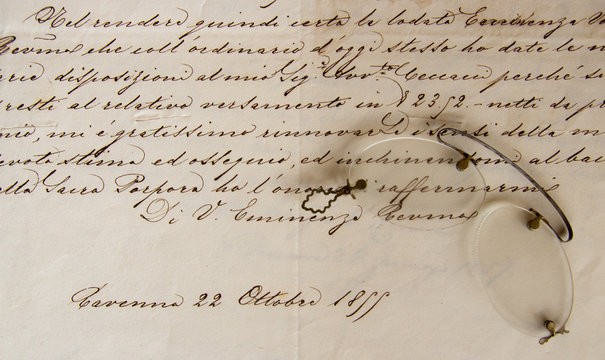 Nel rendere quindi certa la lodata Eminenza V
Revma che coll'ordinario d'oggi stesso ho date le n
arie disposizioni al mio Sig.r Avv.to Ceccaci perché si
resti al relativo versamento in § 2352.- netti da p
mio, mi è gratissimo rinnovar i sensi della m
evota stima ed ossequio, ed inchinandomi al bac
alla Sacra Porpora ho l'onore di raffermarmi
Di V. Eminenza Revma
Ravenna 22 Ottobre 1855